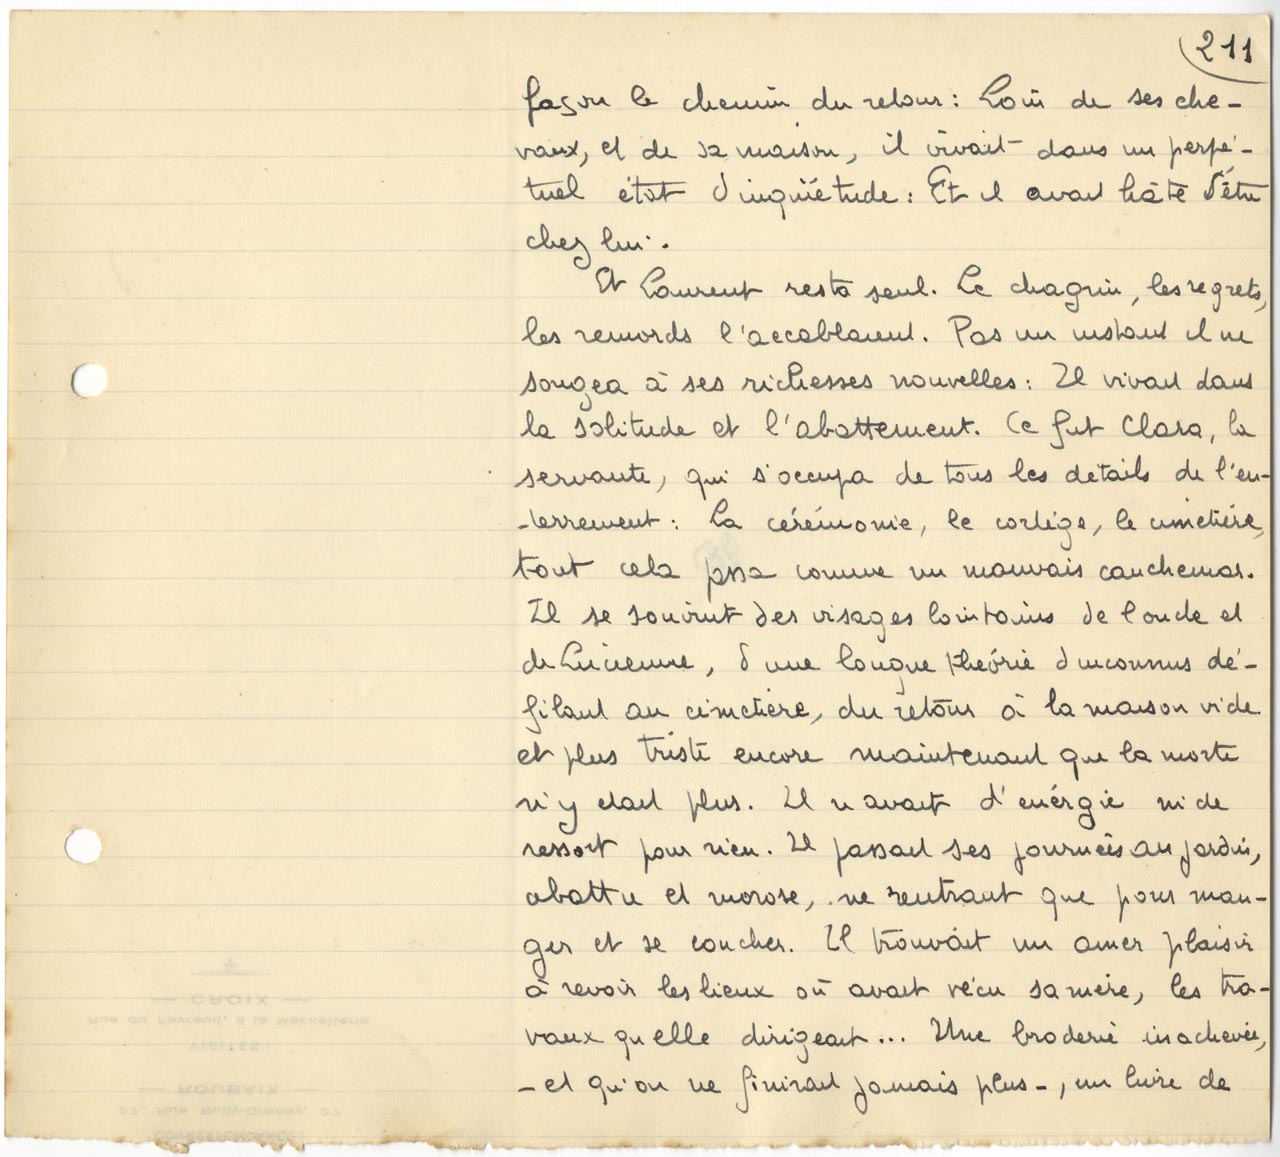 211
façon le chemin du retour : Loin de ses che-
vaux, et de sa maison, il vivait dans un perpé-
tuel état d'inquiétude : Et il avait hâte d'être
chez lui.
Et Laurent resta seul. Le chagrin, les regrets,
les remords l'accablaient. Pas un instant il ne
songea à ses richesses nouvelles : Il vivait dans
la solitude et l'abattement. Ce fut Clara, la
servante, qui s'occupa de tous les détails de l'en-
-terrement : La cérémonie, le cortège, le cimetière,
tout cela passa comme un mauvais cauchemar.
Il se souvint des visages lointains de l'oncle et
de Lucienne, d'une longue théorie d'inconnus dé-
filant au cimetière, du retour à la maison vide
et plus triste encore maintenant que la morte
n'y était plus. Il n'avait d'énergie ni de
ressort pour rien. Il passait ses journées au jardin,
abattu et morose, ne rentrant que pour man-
ger et se coucher. Il trouvait un amer plaisir
à revoir les lieux où avait vécu sa mère, les tra-
vaux qu'elle dirigeait... Une broderie inachevée,
- et qu'on ne finirait jamais plus -, un livre de
CROIX
Rue du Favreuil, à la Mackellerie
VISITES:
ROUBAIX
27, Rue Bully-Grenay, 27
CORRESPONDANCE: